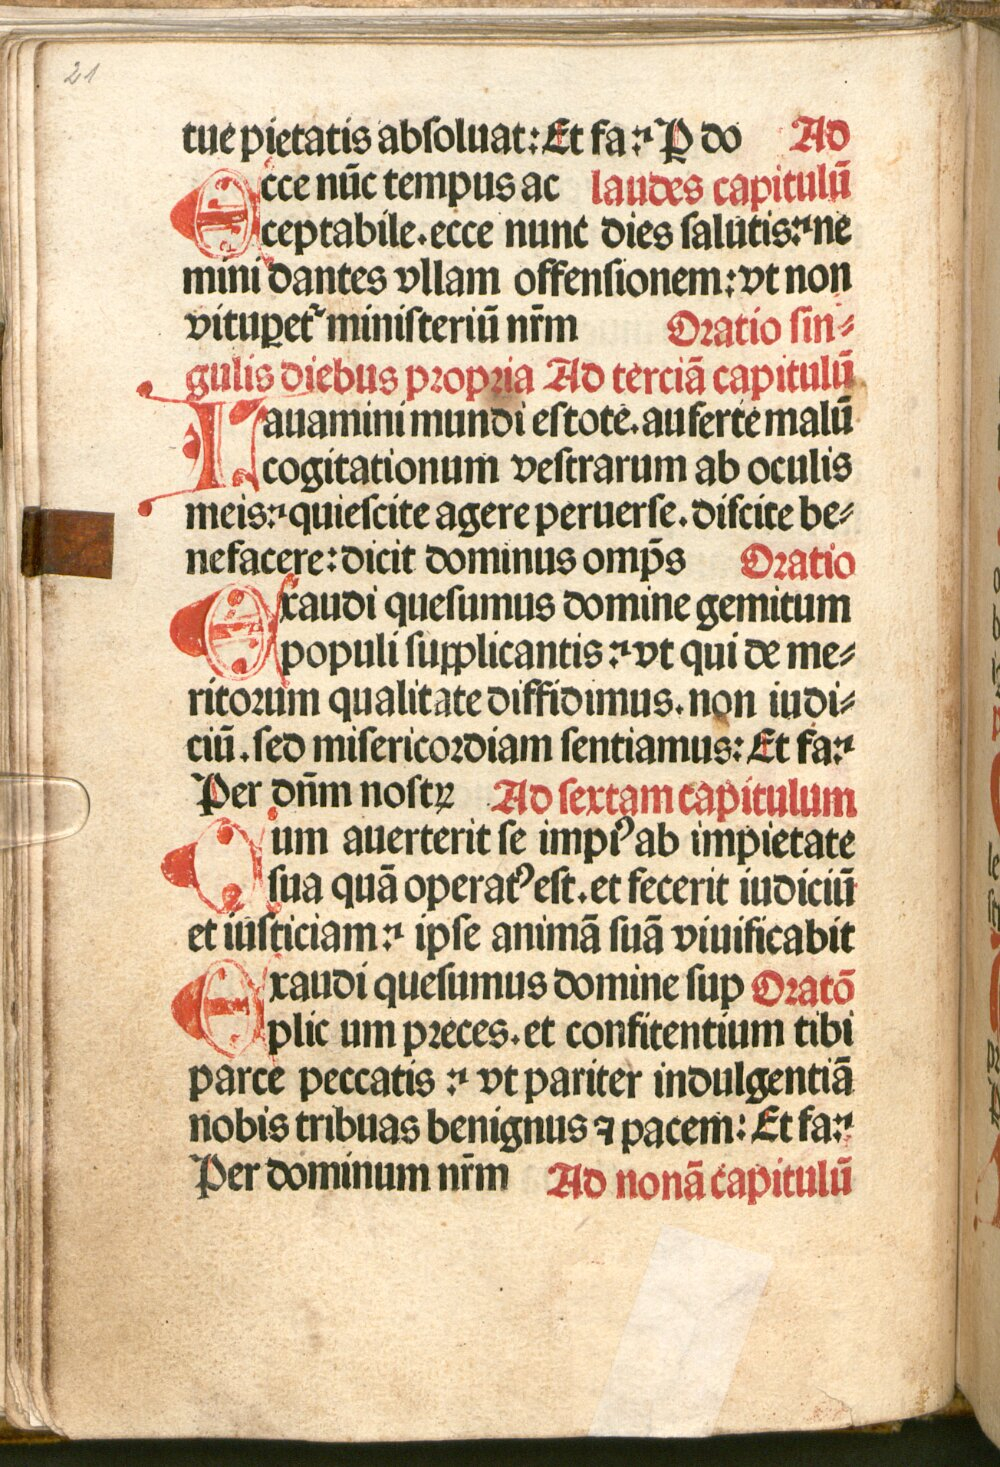 21
tue pietatis absoluat: Et fa⁊ P̱ do Ad
Ecce nūc tempus ac laudes capitulū
ceptabile. ecce nunc dies salutis:⁊ ne
mini dantes vllam offensionem: vt non
vituꝑet᷑ ministeriū nr̄m Oratio sin⸗
gulis diebus propria Ad terciā capitulū
Lauamini mundi estote. auferte malū
cogitationum vestrarum ab oculis
meis:⁊ quiescite agere peruerse. discite be⸗
nefacere: dicit dominus omp̄s Oratio
Exaudi quesumus domine gemitum
populi supplicantis:⁊ vt qui de me⸗
ritorum qualitate diffidimus. non iudi⸗
ciū. sed misericordiam sentiamus: Et fa:⁊
Per dn̄m nostꝝ Ad sextam capitulum
Cum auerterit se impiꝰ ab impietate
sua quā operatꝰ est. et fecerit iudiciū
et iusticiam:⁊ ipse animā suā viuificabit
Exaudi quesumus domine sup Oratō
plic um preces. et confitentium tibi
parce peccatis:⁊ vt pariter indulgentiā
nobis tribuas benignus ⁊ pacem: Et fa:⁊
Per dominum nr̄m Ad nonā capitulū